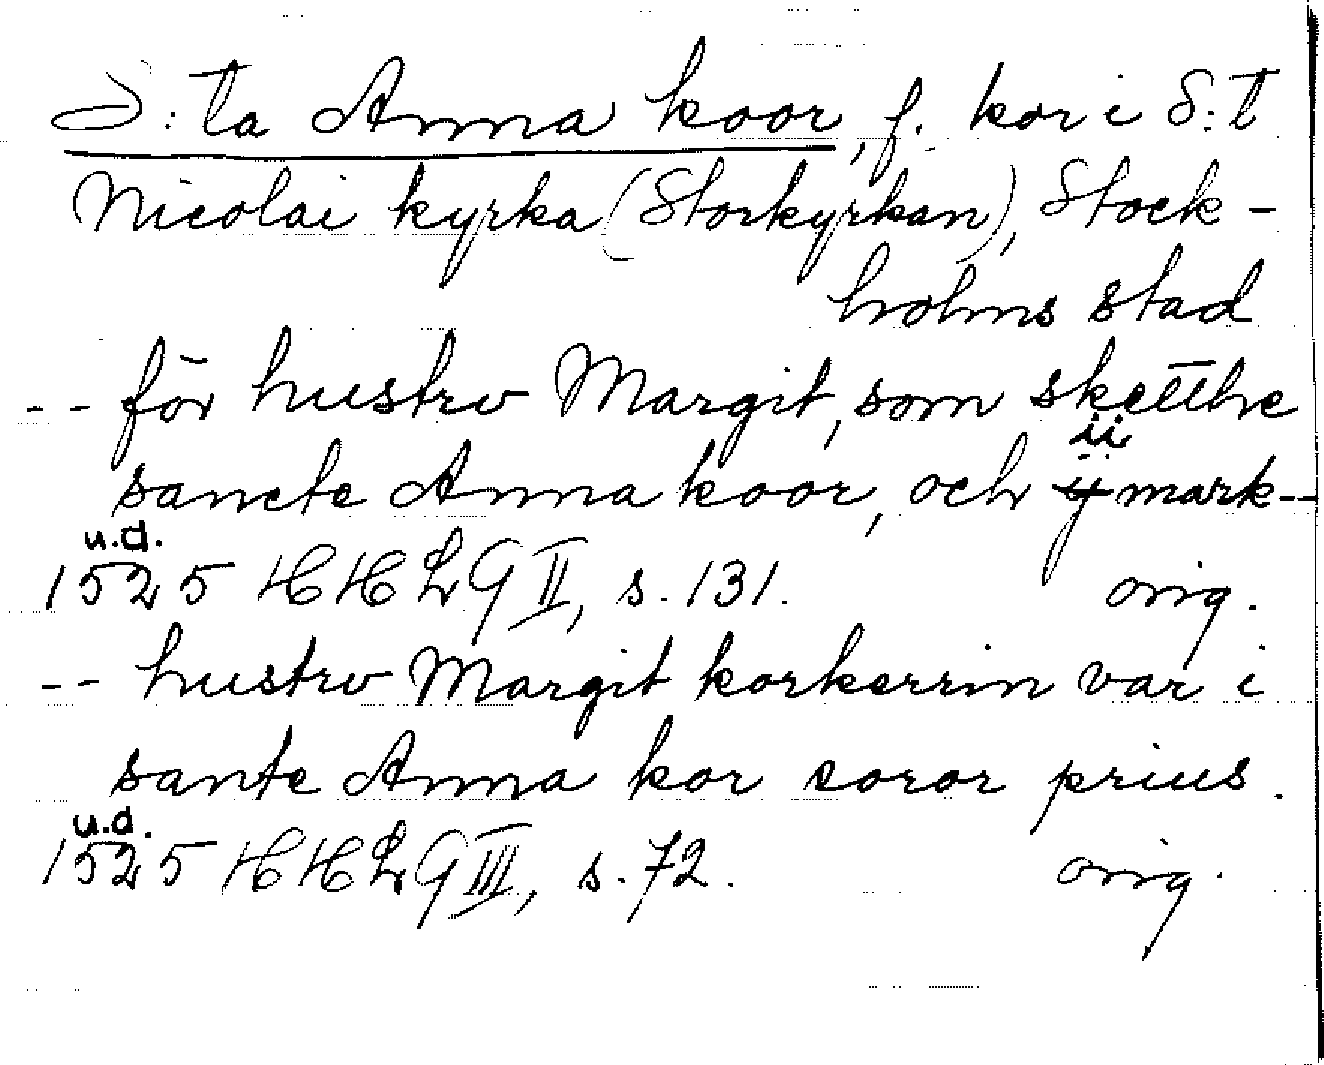 S:ta Anna koor, f. kor i S:t
Nicolai kyrka (Storkyrkan), Stock-
holms stad
-- för hustrv Margit, som skettthe
ii
sancte Anna koor, och ij mark--
u.d.
1525 HHLG II, s. 131. orig.
-- hustrv Margit korkerrin var i
sante Anna kor soror prius.
u.d.
1525 HHLG III, s. 72. orig.